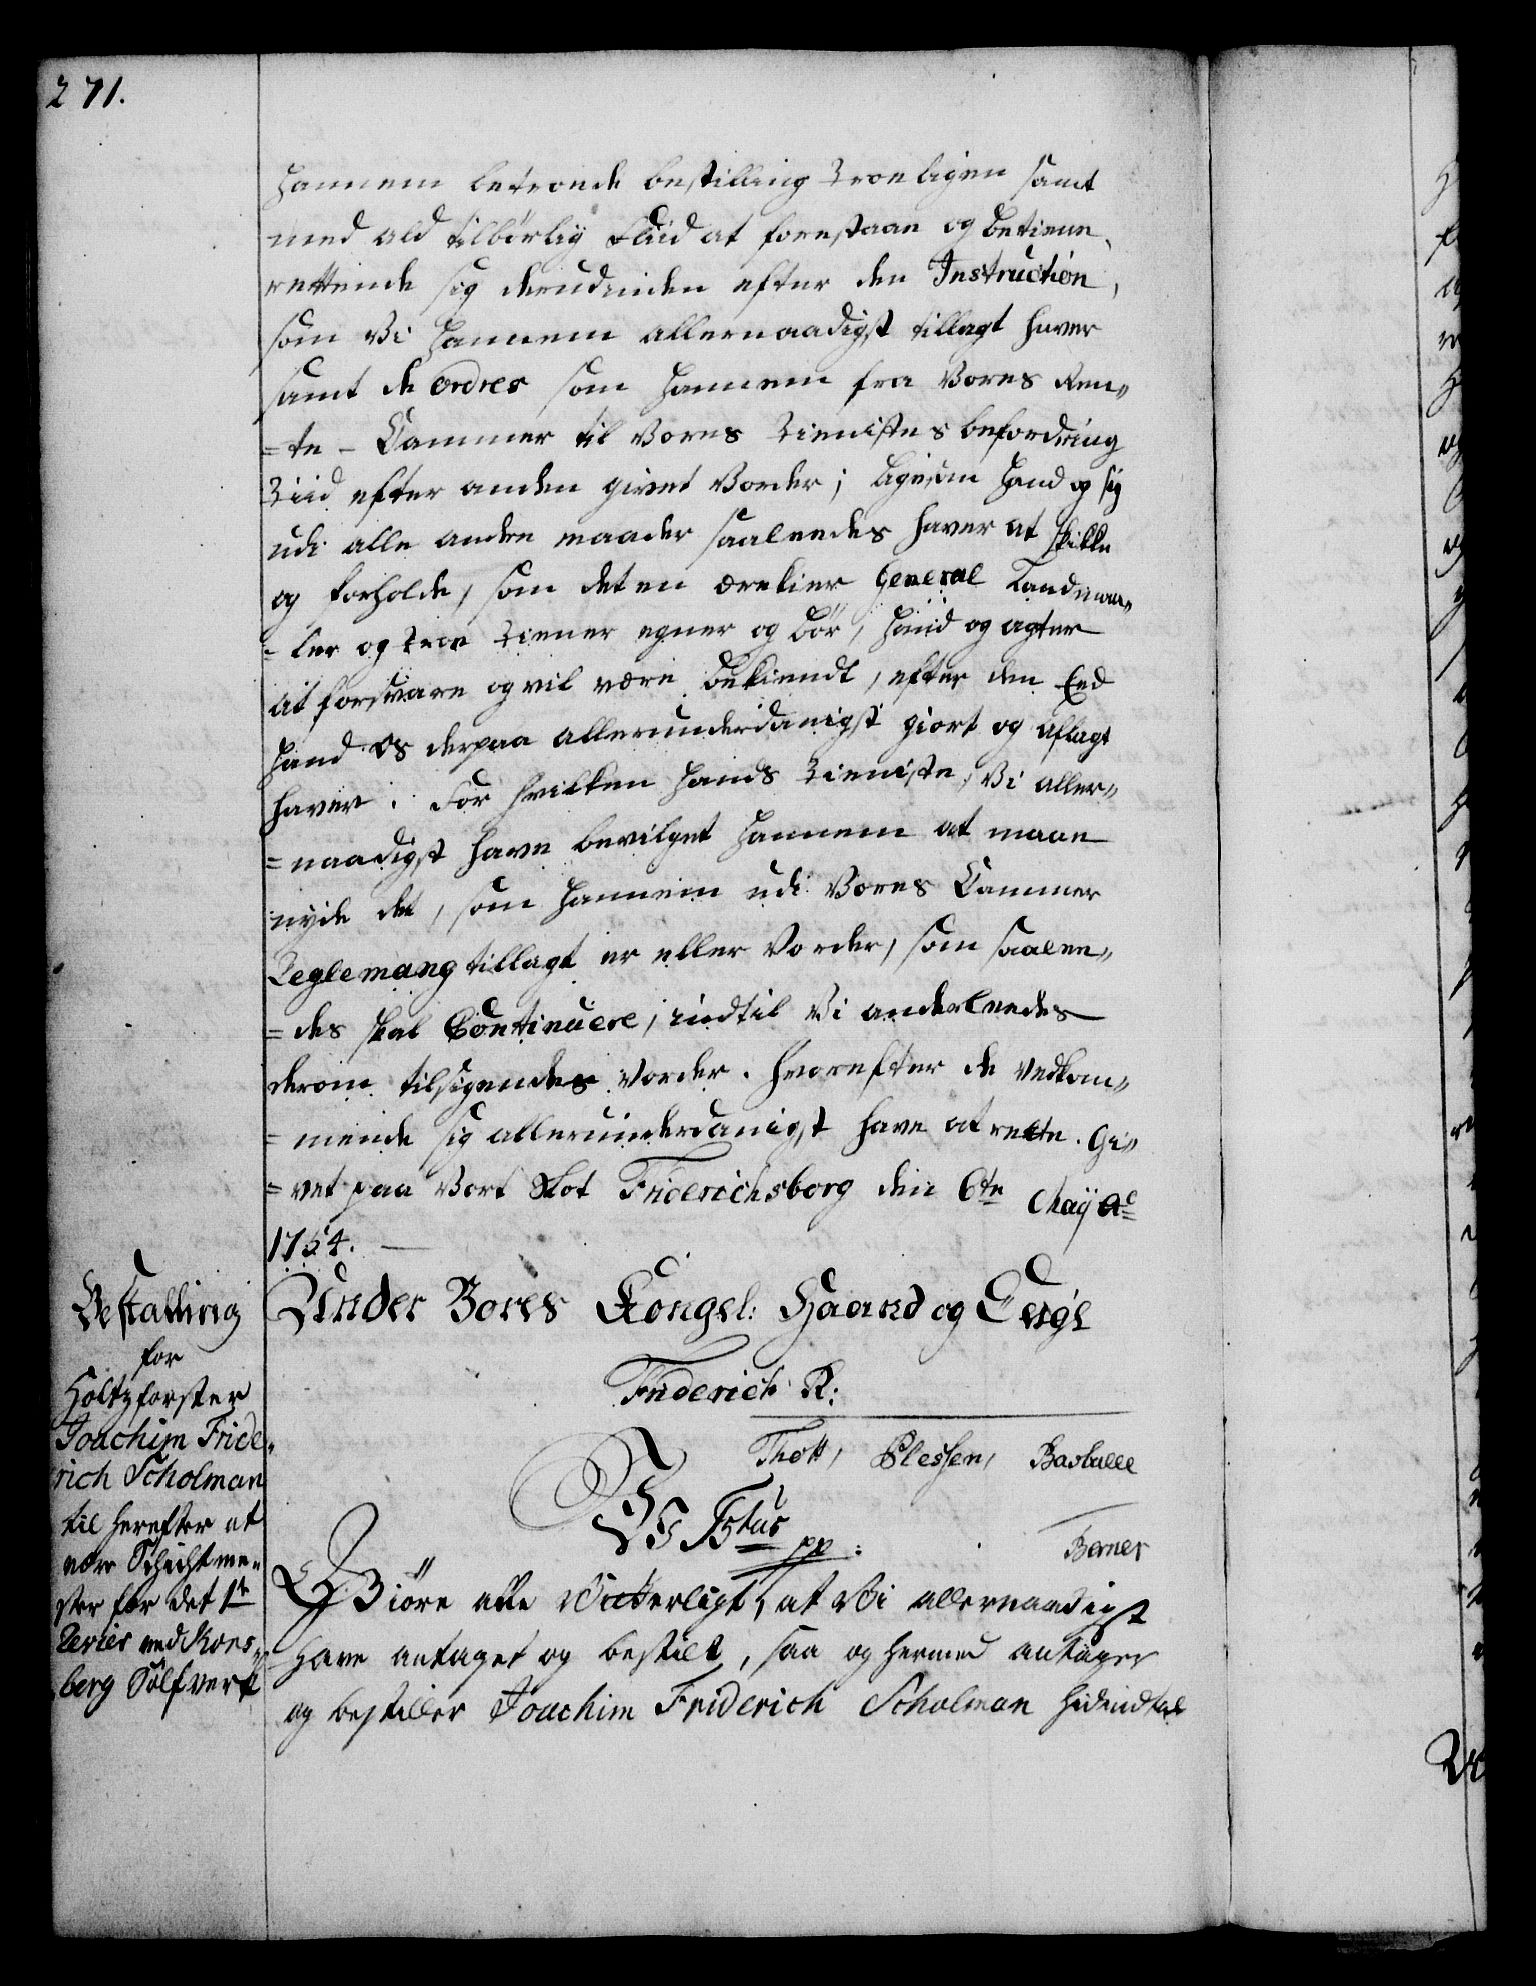 271.
hannem betroede bestilling troeligen samt
med ald tilbörlig Fliid at forestaae og betiene,
rettende sig derudinden efter den Instruction,
som Vi hannem allernaadigst tillagt haver
samt de ordres som hannem fra Vores Ren„
=te-Cammer til Vores tienistes befordring
tiid efter anden givet Vorder; ligesom hand og sig
udi alle andre maader saaleedes haver at skikke
og forholde, som det en ærekier General Landmaa„
=ler og troe tiener egner og bör, hand og agter
at forsvare og vil være bekiendt, efter den Eed
hand os derpaa allerunderdanigst giort og aflagt
haver. For hvilken hands tieniste, Vi aller„
=naadigst have bevilget hannem at maae
nyde det, som hannem udi Vores Cammer
Reglemang tillagt er eller Vorder, som saalee„
=des skal Continuere, indtil Vi anderleedes
derom tilsigendes vorder. Hvorefter de Vedkom„
=mende sig allerunderdanigst have at rette. Gi„
=vet paa Vort Slot Friderichsborg den 6te Maÿ Ao
1754.
Under Vores Kongel: Haand og Zeigl
Friderich R:
Thott, Plessen, Barballe
Berner
Bestalling
for
Holtzforster
Joachim Fride„
rich Scholman
til herefter at
være Schichtme„
ster for det 1te
Revier ved Kons„
berg Sölfverk
VF 5tus pp:
Giöre alle Vitterligt, at Vi allernaadigst
have antaget og bestilt, saa og hermed antager
og bestiller Joachim Friderich Scholman hidindtil